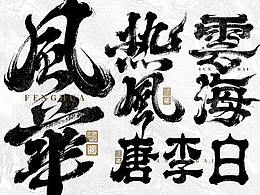 風華
FENGHUA
熱風
雲海
唐李白